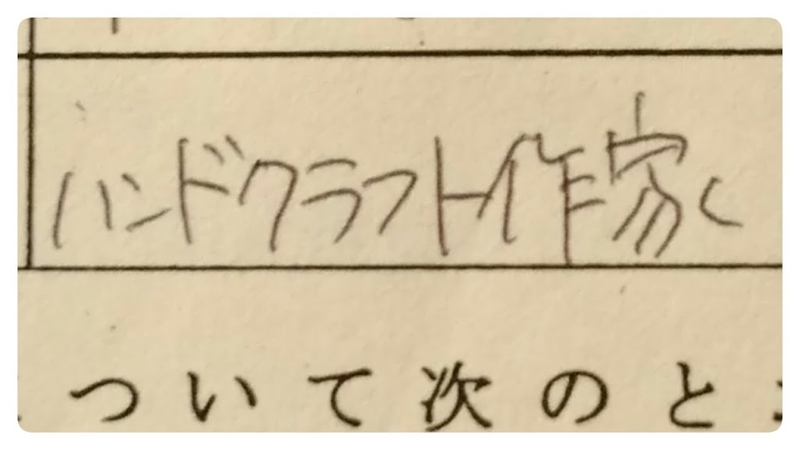 ハンドクラフト作家
ついて次のと